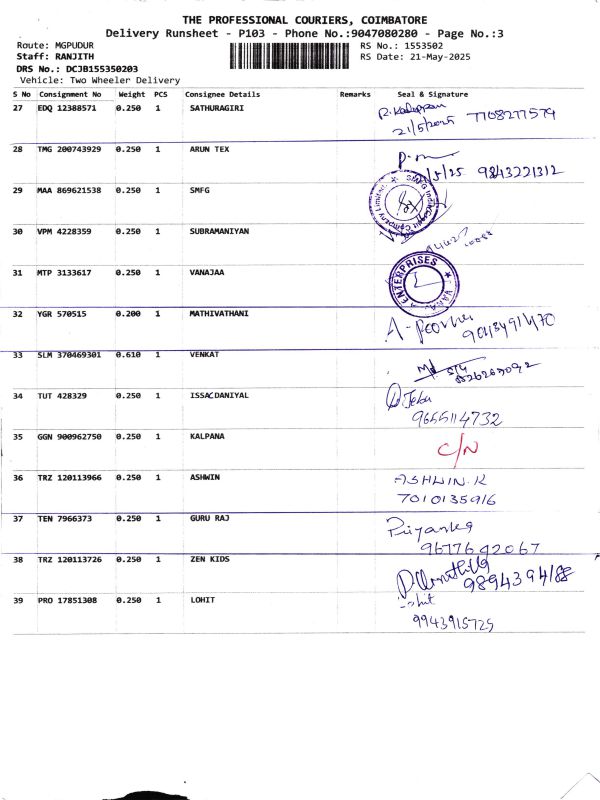 THE PROFESSIONAL COURIERS, COIMBATORE
Delivery Runsheet - P103 - Phone No.:9047080280 - Page No.:3
Route: MGPUDUR RS No.: 1553502
Staff: RANJITH RS Date: 21-May-2025
DRS No.: DCJB155350203
Vehicle: Two Wheeler Delivery
S No Consignment No Weight PCS Consignee Details Remarks Seal & Signature
27 EDQ 12388571 0.250 1 SATHURAGIRI
21/5/2025 7708277579
28 TMG 200743929 0.250 1 ARUN TEX
/5/25 9843221312
29 MAA 869621538 0.250 1 SMFG
30 VPM 4228359 0.250 1 SUBRAMANIYAN
31 MTP 3133617 0.250 1 VANAJAA
ENTERPRISES
32 YGR 570515 0.200 1 MATHIVATHANI
33 SLM 370469301 0.610 1 VENKAT
34 TUT 428329 0.250 1 ISSACDANIYAL
Jeba
9655114732
35 GGN 900962750 0.250 1 KALPANA C/N
36 TRZ 120113966 0.250 1 ASHWIN ASHWIN.K
7010135916
37 TEN 7966373 0.250 1 GURU RAJ Priyanka
9677692067
38 TRZ 120113726 0.250 1 ZEN KIDS
9894394188
39 PRO 17851308 0.250 1 LOHIT
9943915725